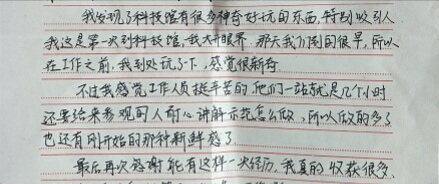 我发现了科技馆有很多神奇好玩的东西,特别吸引人
我这是第一次到科技馆,我大开眼界。那天我们到的很早,所以
在工作之前,我到处玩了下,感觉很新奇
不过我感觉工作人员挺辛苦的,他们一站就是几个小时
还要给来参观的人耐心讲解示范怎么做,所以做的多了
也还有刚开始的那种新鲜感了
最后再次感谢能有这样一次经历,我真的收获很多,